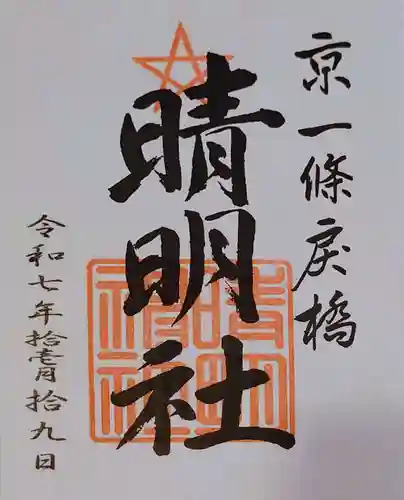 京一條戻橋
晴明社
令和七年拾壱月拾九日
晴明神社